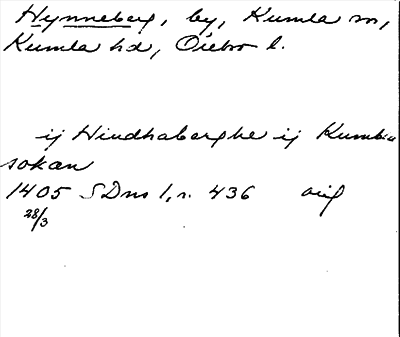 Hynneberg, by, Kumla sn,
Kumla hd, Örebro l.
ij Hindhaberghe ij Kumbla
sokan
1405 SDns 1, s. 436 orig
28/3